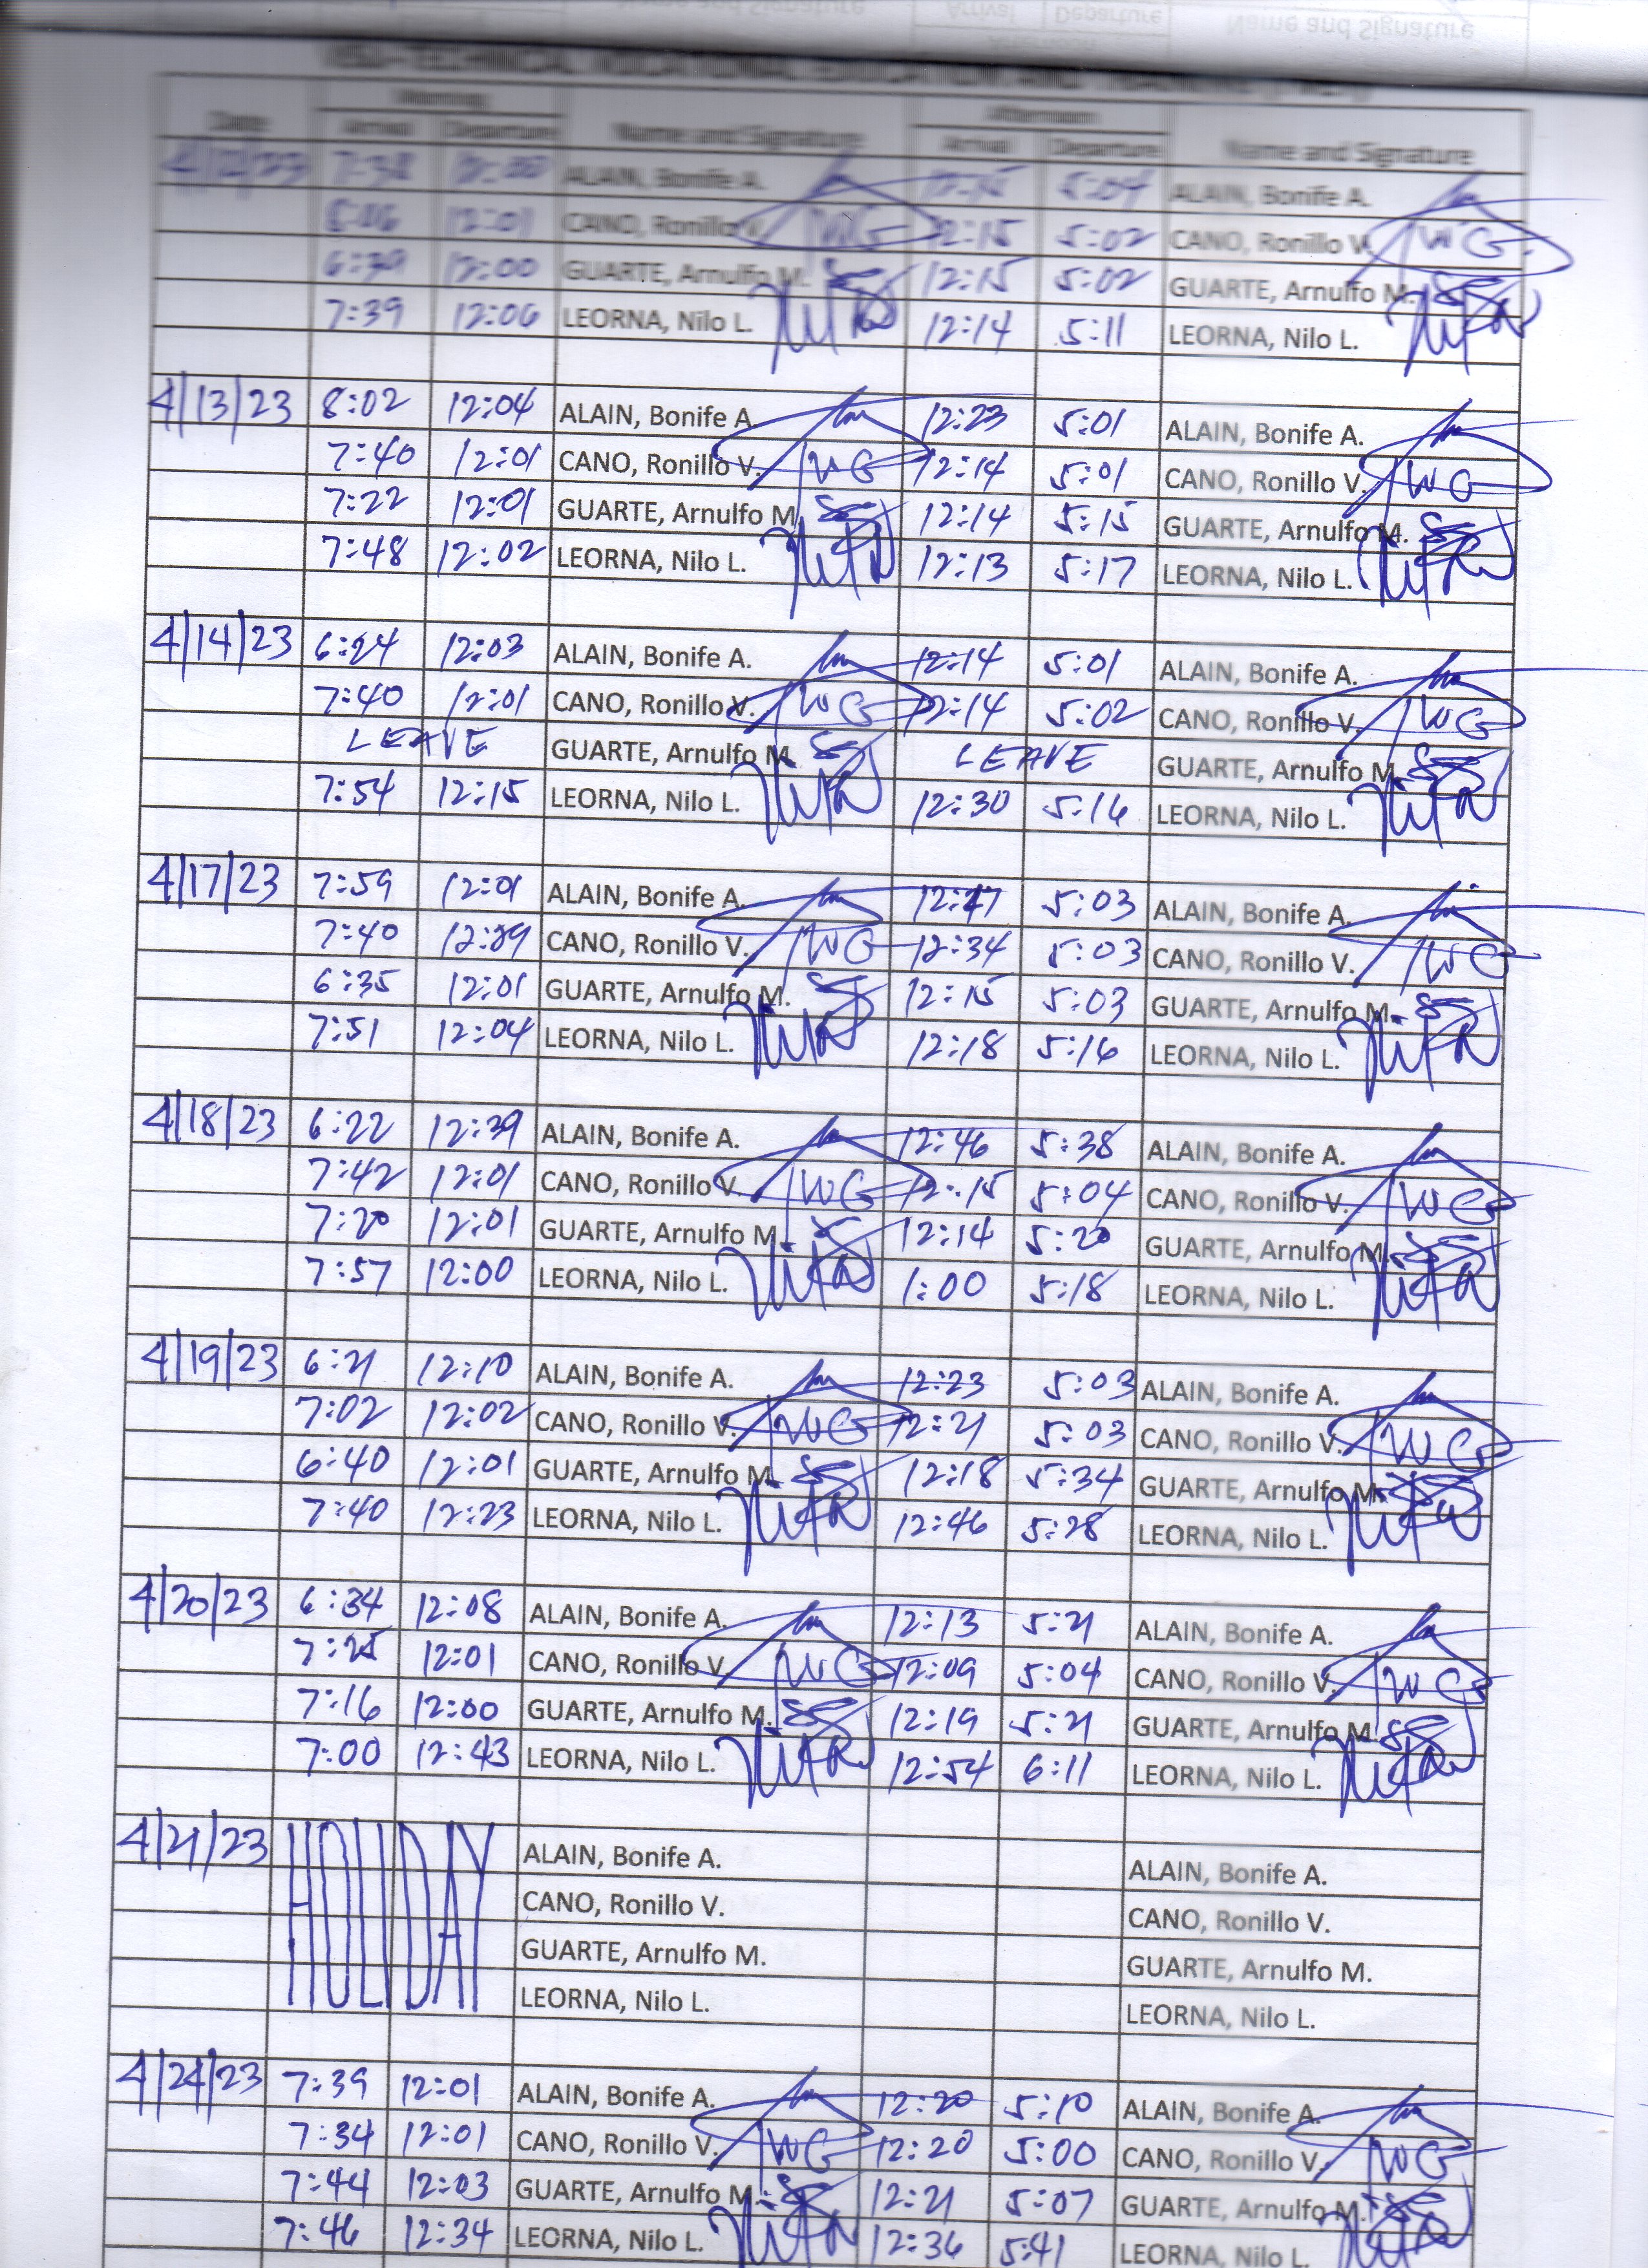 Name and Signature Arrival Departure Name and Signature
TECHNICAL VOCATIONAL EDUCATION AND TRAINING
Morning Afternoon
Date Arrival Departure Name and Signature Arrival Departure Name and Signature
4/12/23 7:38 12:00 ALAIN, Bonife A. 12:15 5:04 ALAIN, Bonife A.
12:01 CANO, Ronillo V. 12:15 5:02 CANO, Ronillo V.
6:39 12:00 GUARTE, Arnulfo M. 12:15 5:02 GUARTE, Arnulfo M.
7:39 12:06 LEORNA, Nilo L. 12:14 5:11 LEORNA, Nilo L.
4/13/23 8:02 12:04 ALAIN, Bonife A. 12:23 5:01 ALAIN, Bonife A.
7:40 12:01 CANO, Ronillo V. 12:14 5:01 CANO, Ronillo V.
7:22 12:01 GUARTE, Arnulfo M. 12:14 5:15 GUARTE, Arnulfo M.
7:48 12:02 LEORNA, Nilo L. 12:13 5:17 LEORNA, Nilo L.
4/14/23 6:24 12:03 ALAIN, Bonife A. 12:14 5:01 ALAIN, Bonife A.
7:40 12:01 CANO, Ronillo V. 12:14 5:02 CANO, Ronillo V.
LEAVE GUARTE, Arnulfo M. LEAVE GUARTE, Arnulfo M.
7:54 12:15 LEORNA, Nilo L. 12:30 5:16 LEORNA, Nilo L.
4/17/23 7:59 12:01 ALAIN, Bonife A. 5:03 ALAIN, Bonife A.
7:40 CANO, Ronillo V. 12:34 5:03 CANO, Ronillo V.
6:35 12:01 GUARTE, Arnulfo M. 12:15 5:03 GUARTE, Arnulfo M.
7:51 12:04 LEORNA, Nilo L. 12:18 5:16 LEORNA, Nilo L.
4/18/23 6:22 12:39 ALAIN, Bonife A. 12:46 5:38 ALAIN, Bonife A.
7:42 12:01 CANO, Ronillo V. 12:15 5:04 CANO, Ronillo V.
7:20 12:01 GUARTE, Arnulfo M. 12:14 5:20 GUARTE, Arnulfo M.
7:57 12:00 LEORNA, Nilo L. 1:00 5:18 LEORNA, Nilo L.
4/19/23 6:21 12:10 ALAIN, Bonife A. 12:23 5:03 ALAIN, Bonife A.
7:02 12:02 CANO, Ronillo V. 12:21 5:03 CANO, Ronillo V.
6:40 12:01 GUARTE, Arnulfo M. 12:18 5:34 GUARTE, Arnulfo M.
7:40 12:23 LEORNA, Nilo L. 12:46 5:28 LEORNA, Nilo L.
4/20/23 6:34 12:08 ALAIN, Bonife A. 12:13 5:21 ALAIN, Bonife A.
7:25 12:01 CANO, Ronillo V. 12:09 5:04 CANO, Ronillo V.
7:16 12:00 GUARTE, Arnulfo M. 12:19 5:21 GUARTE, Arnulfo M.
7:00 12:43 LEORNA, Nilo L. 12:54 6:11 LEORNA, Nilo L.
4/21/23 HOLIDAY ALAIN, Bonife A. ALAIN, Bonife A.
CANO, Ronillo V. CANO, Ronillo V.
GUARTE, Arnulfo M. GUARTE, Arnulfo M.
LEORNA, Nilo L. LEORNA, Nilo L.
4/24/23 7:39 12:01 ALAIN, Bonife A. 12:20 5:10 ALAIN, Bonife A.
7:34 12:01 CANO, Ronillo V. 12:20 5:00 CANO, Ronillo V.
7:44 12:03 GUARTE, Arnulfo M. 12:21 5:07 GUARTE, Arnulfo M.
7:46 12:34 LEORNA, Nilo L. 12:36 5:41 LEORNA, Nilo L.